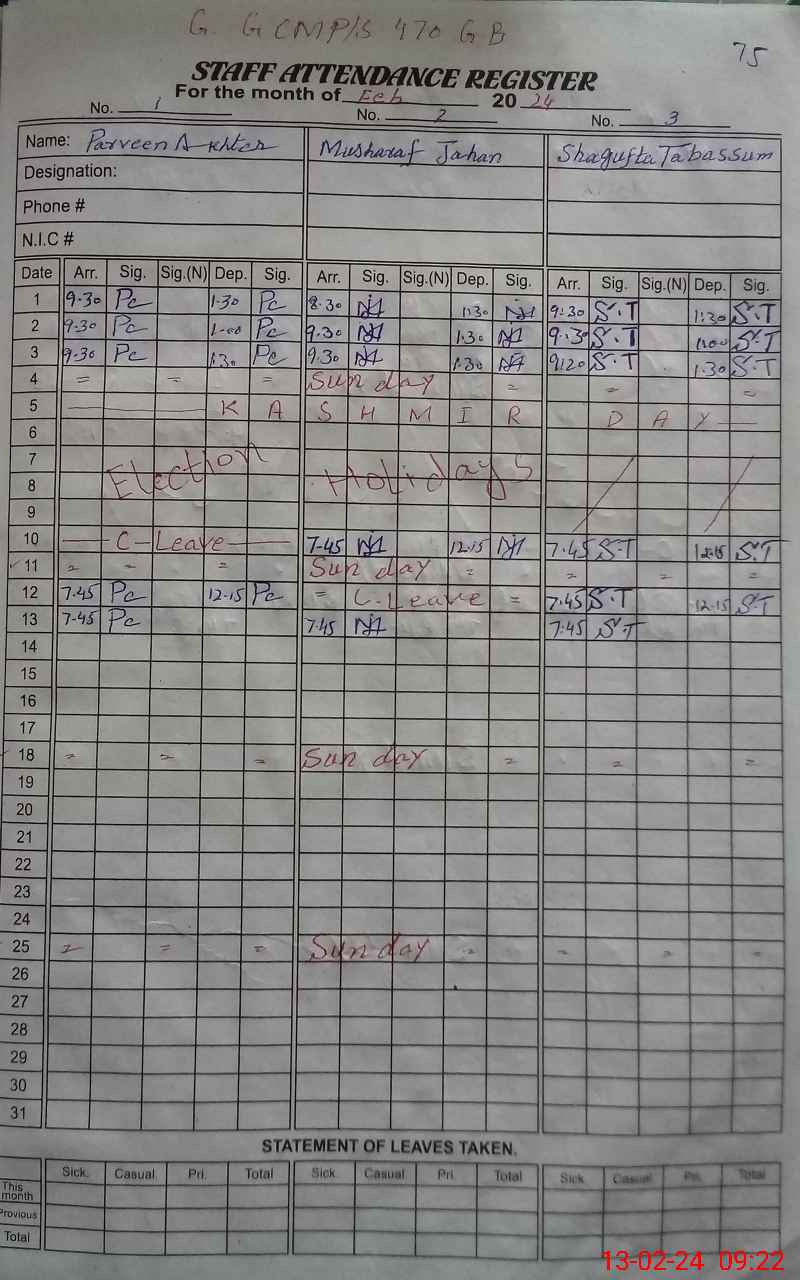 G. GCMP/S 470 GB
75
STAFF ATTENDANCE REGISTER
For the month of Feb 2024
No. 1 No. 2 No. 3
Name: Parveen Akhter Musharaf Jahan Shagufta Tabassum
Designation:
Phone #
N.I.C #
Date Arr. Sig. Sig.(N) Dep. Sig. Arr. Sig. Sig.(N) Dep. Sig. Arr. Sig. Sig.(N) Dep. Sig.
1 9.30 Pc 1.30 Pc 8.30 1:30 9:30 S.T 1:30 S.T
2 9.30 Pc 1.00 Pc 9.30 1.30 9.30 S.T 1.00 S.T
3 9.30 Pc 1.30 Pc 9.30 1.30 9:20 S.T 1.30 S.T
4 = = = Sunday = = =
5 KASHMIR DAY
6
7 Election Holidays
8
9
10 C-Leave 7-45 12.15 7.45 S.T 12.15 S.T
11 = = = Sunday = = = =
12 7.45 Pc 12.15 Pc = C.Leave = 7.45 S.T 12.15 S.T
13 7.45 Pc 7.45 7:45 S.T
14
15
16
17
18 = = = Sunday = = =
19
20
21
22
23
24
25 = = = Sunday = = = =
26
27
28
29
30
31
STATEMENT OF LEAVES TAKEN.
Sick. Casual Pri. Total Sick. Casual Pri. Total Sick. Casual Pri. Total
This month
Previous
Total
13-02-24 09:22